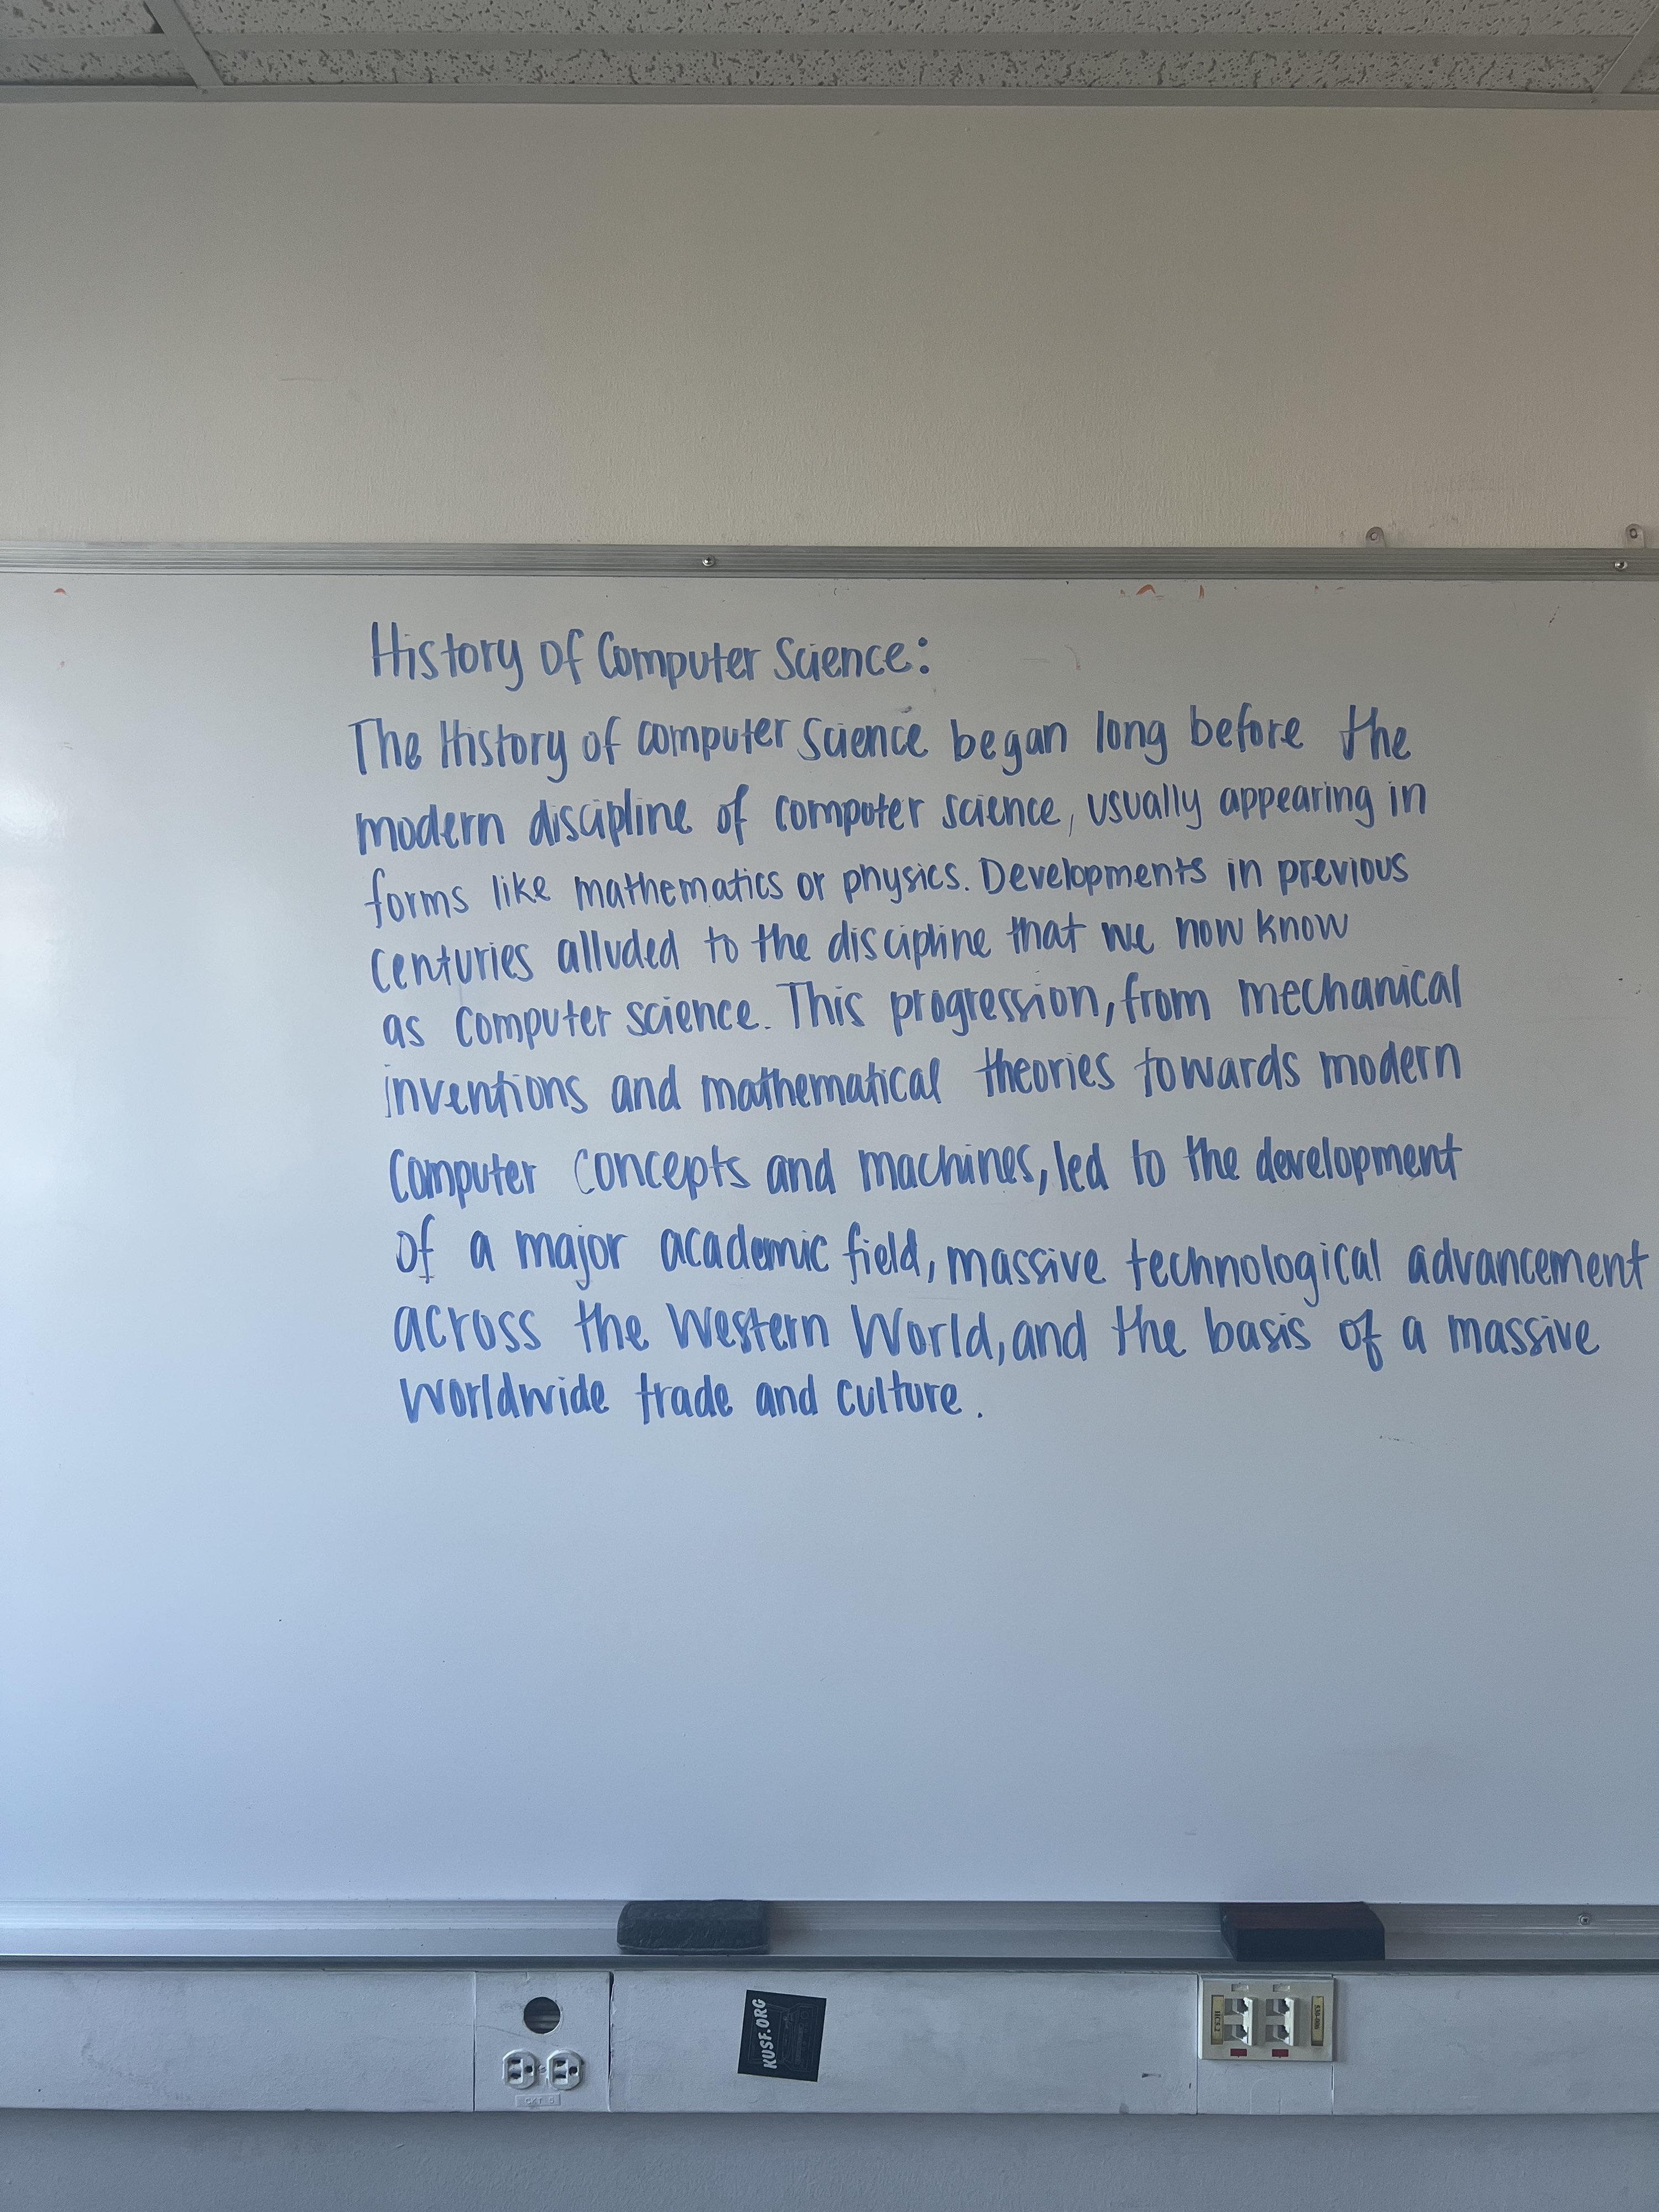 History of Computer Science:
The History of computer science began long before the
modern discipline of computer science, usually appearing in
forms like mathematics or physics. Developments in previous
centuries alluded to the discipline that we now know
as computer science. This progression, from mechanical
inventions and mathematical theories towards modern
computer concepts and machines, led to the development
of a major academic field, massive technological advancement
across the Western World, and the basis of a massive
worldwide trade and culture.
KUSF.ORG